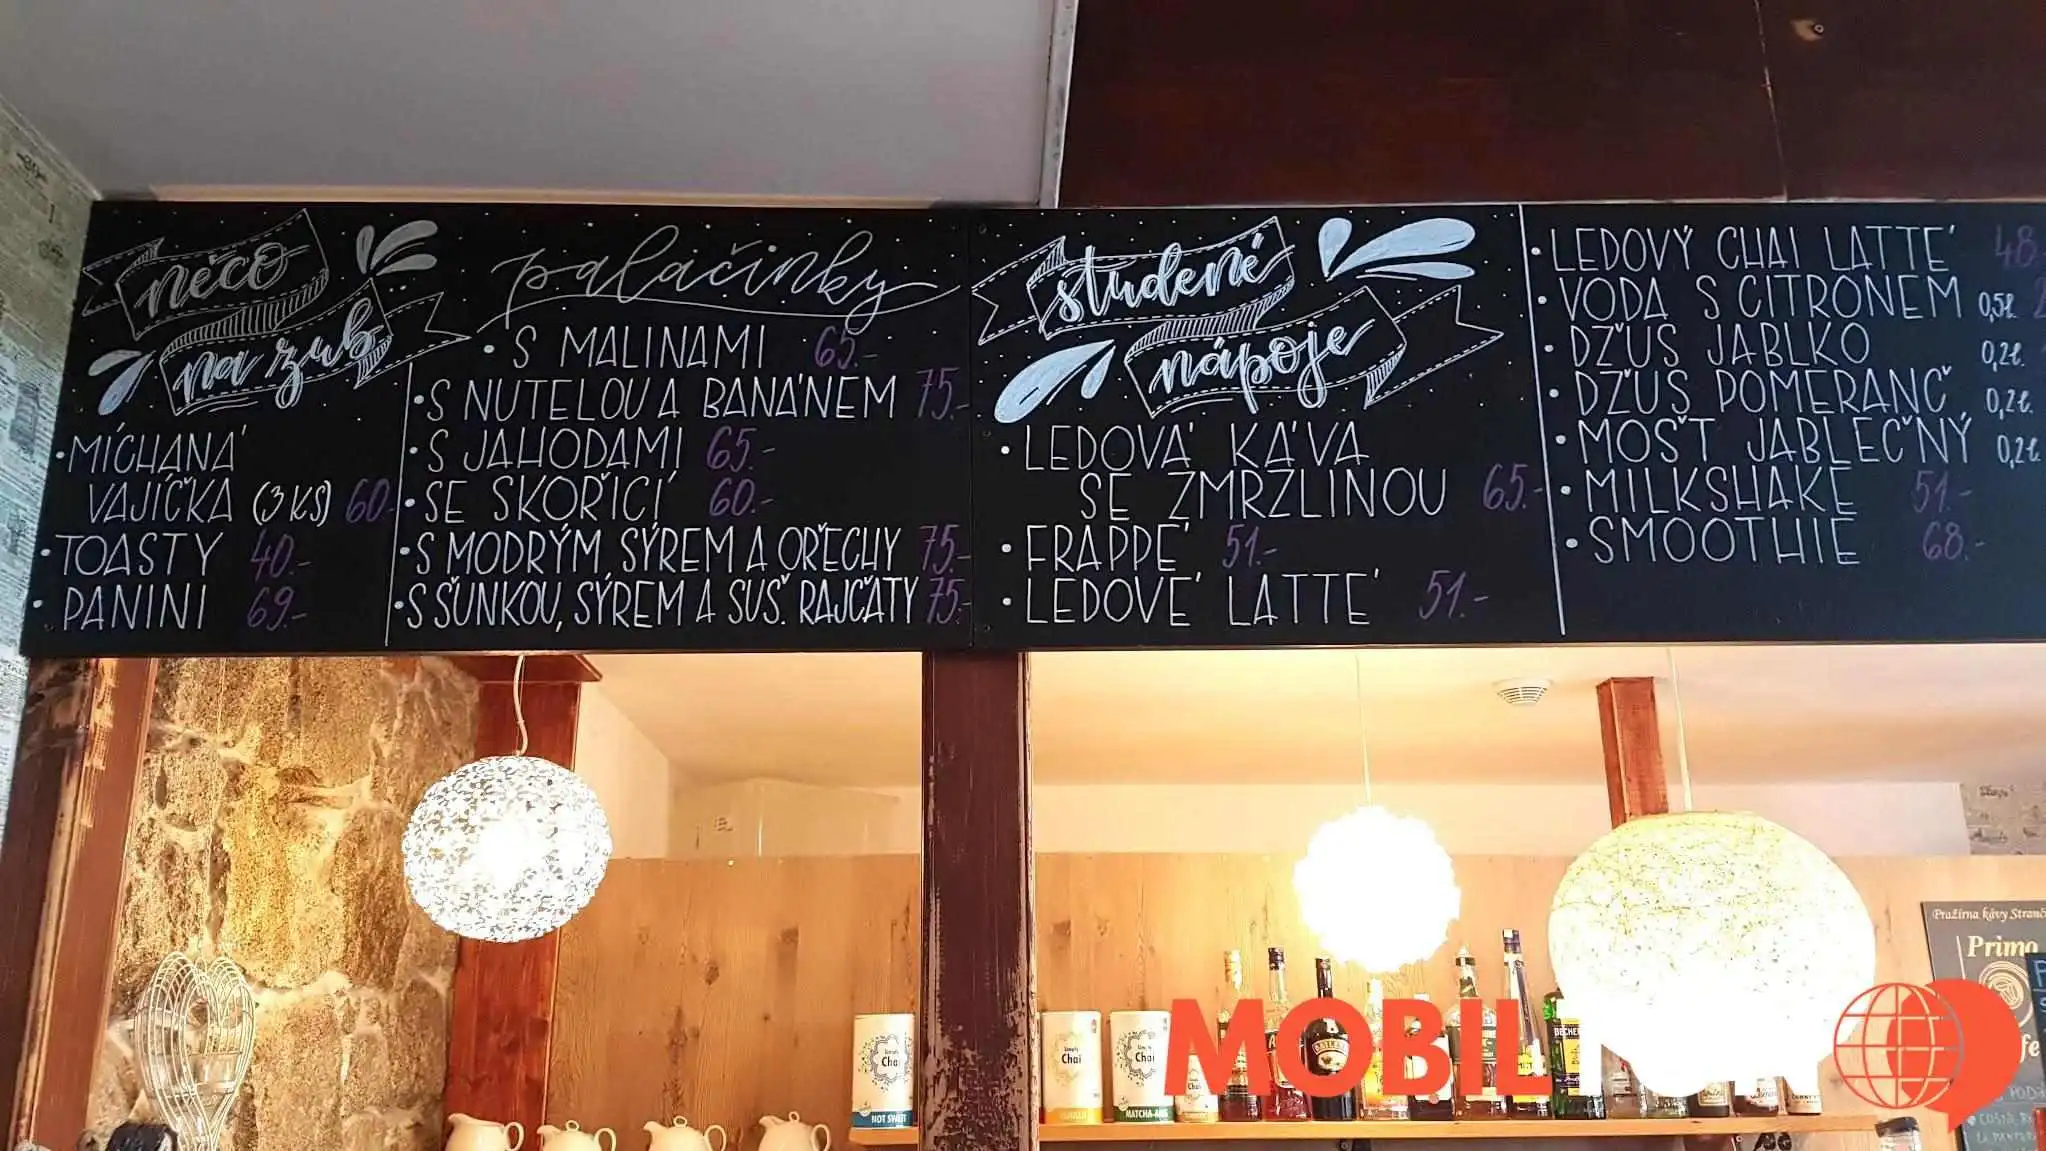 něco
na zub
• MÍCHANÁ
VAJÍČKA (3 KS) 60.-
• TOASTY 40.-
• PANINI 69.-
palačinky
• S MALINAMI 65.-
• S NUTELOU A BANÁNEM 75.-
• S JAHODAMI 65.-
• SE SKOŘICÍ 60.-
• S MODRÝM SÝREM A OŘECHY 75.-
• S ŠUNKOU, SÝREM A SUŠ. RAJČATY 75.-
studené
nápoje
• LEDOVÁ KÁVA
SE ZMRZLINOU 65.-
• FRAPPÉ 51.-
• LEDOVÉ LATTÉ 51.-
• LEDOVÝ CHAI LATTÉ 48.-
• VODA S CITRONEM 0,5l. 2
• DŽUS JABLKO 0,2l.
• DŽUS POMERANČ 0,2l.
• MOŠT JABLEČNÝ 0,2l
• MILKSHAKE 51.-
• SMOOTHIE 68.-
Pražírna kávy
Primo
Simply
Chai
NOT SWEET
Simply
Chai
Chai
MATCHA
Chai
BAILEYS
BECHER
MOBIL